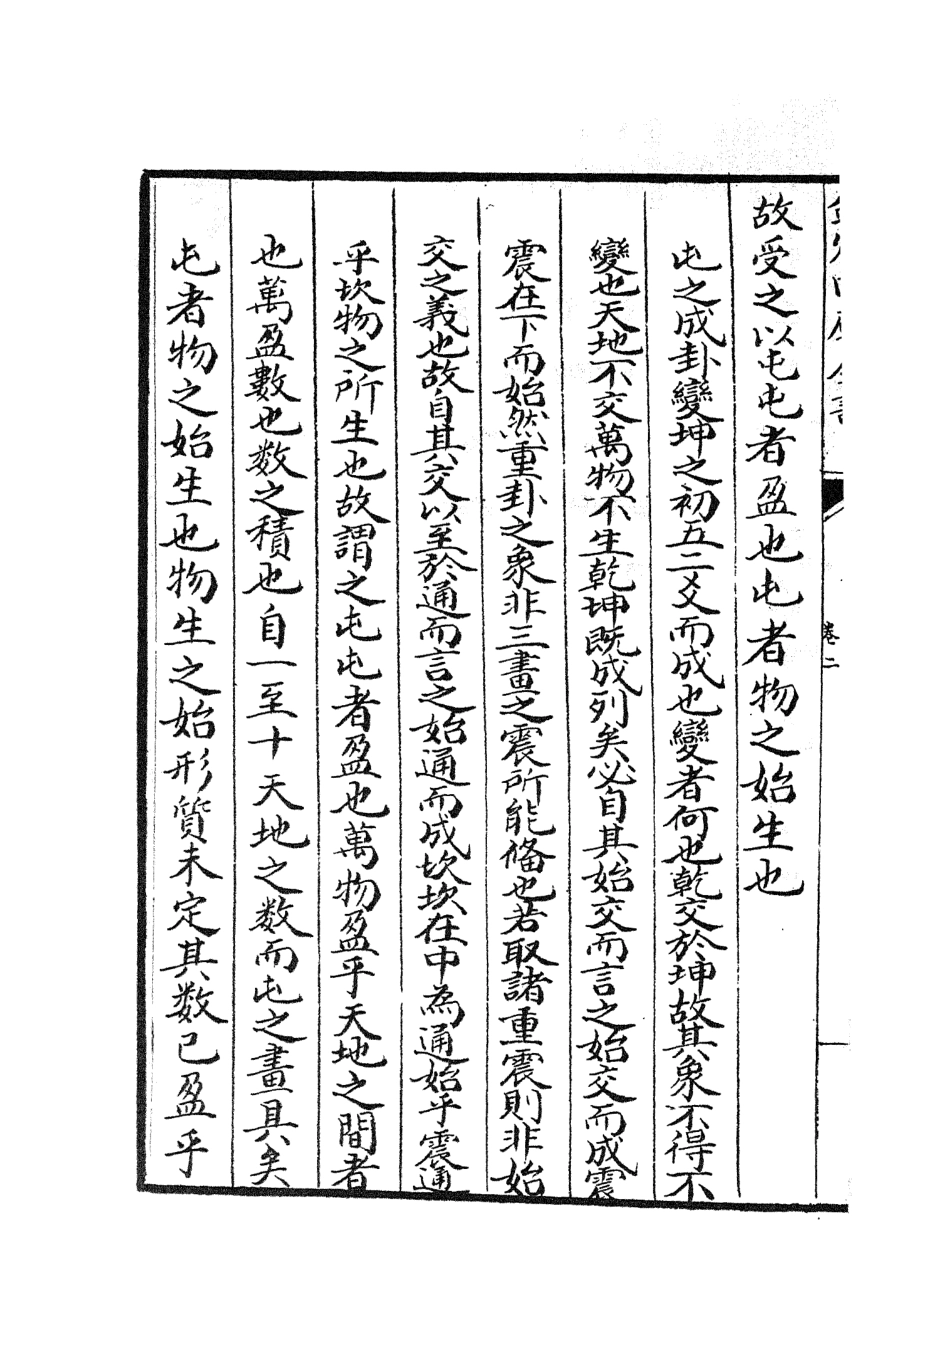 故受之以屯屯者盈也屯者物之始生也
屯之成卦變坤之初五二爻而成也變者何也乾交於坤故其象不得不
變也天地不交萬物不生乾坤既成列矣必自其始交而言之始交而成震
震在下而始然重卦之象非三畫之震所能偹也若取諸重震則非始
交之義也故自其交以至於通而言之始通而成坎坎在中為通始乎震通
乎坎物之所生也故謂之屯屯者盈也萬物盈乎天地之間者
也萬盈數也数之積也自一至十天地之数而屯之畫具矣
屯者物之始生也物生之始形質未定其数已盈乎
卷二